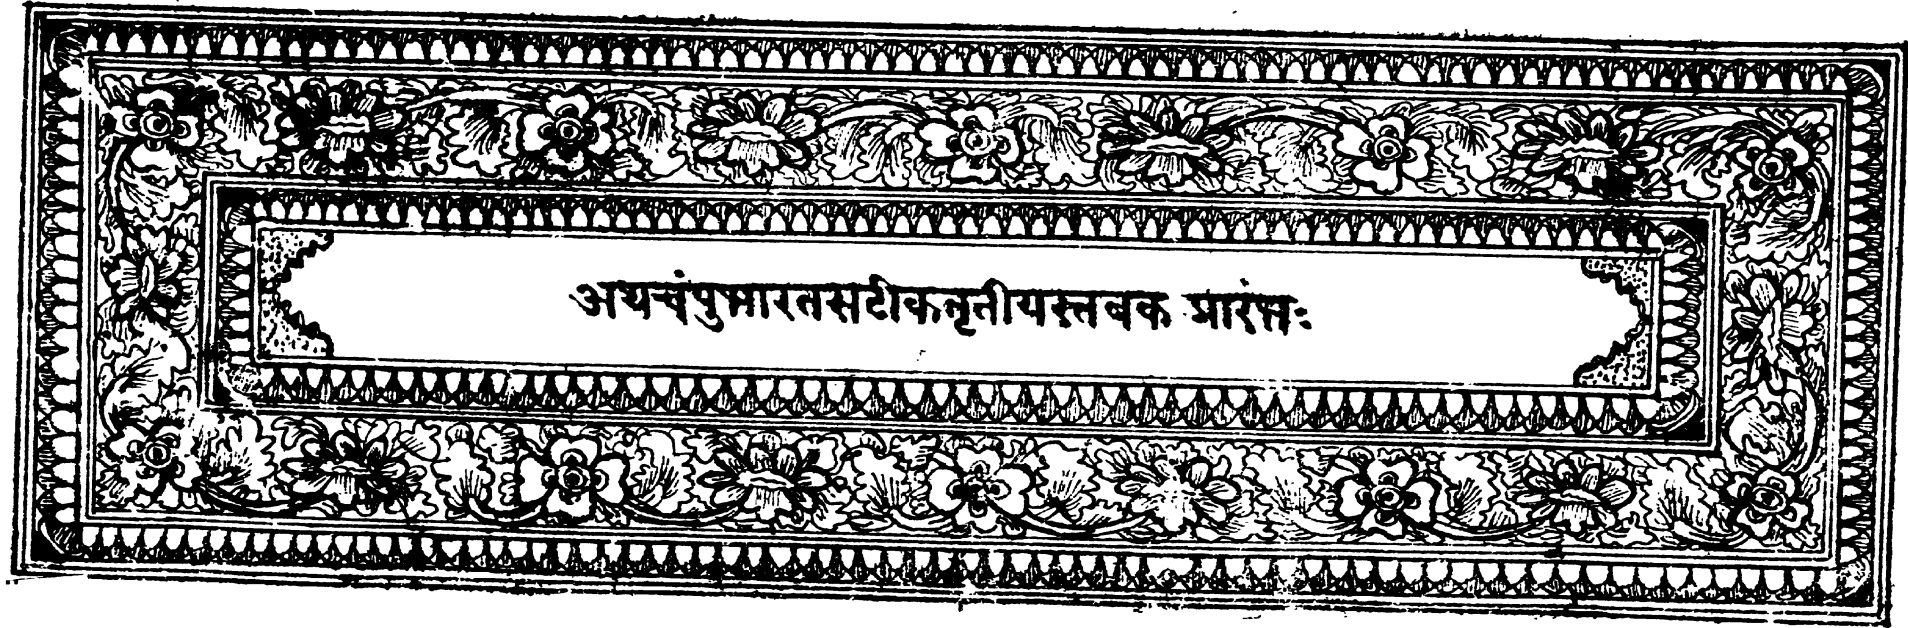 अथचंपुभारतसटीकतृतीयस्तबक प्रारंभः